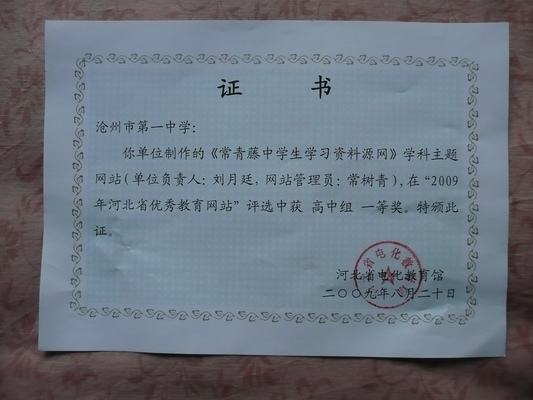 证 书
沧州市第一中学：
你单位制作的《常青藤中学生学习资料源网》学科主题
网站(单位负责人：刘月廷，网站管理员：常树青)，在“2009
年河北省优秀教育网站”评选中获 高中组 一等奖。特颁此
证。
河北省电化教育馆
二〇〇九年八月二十日